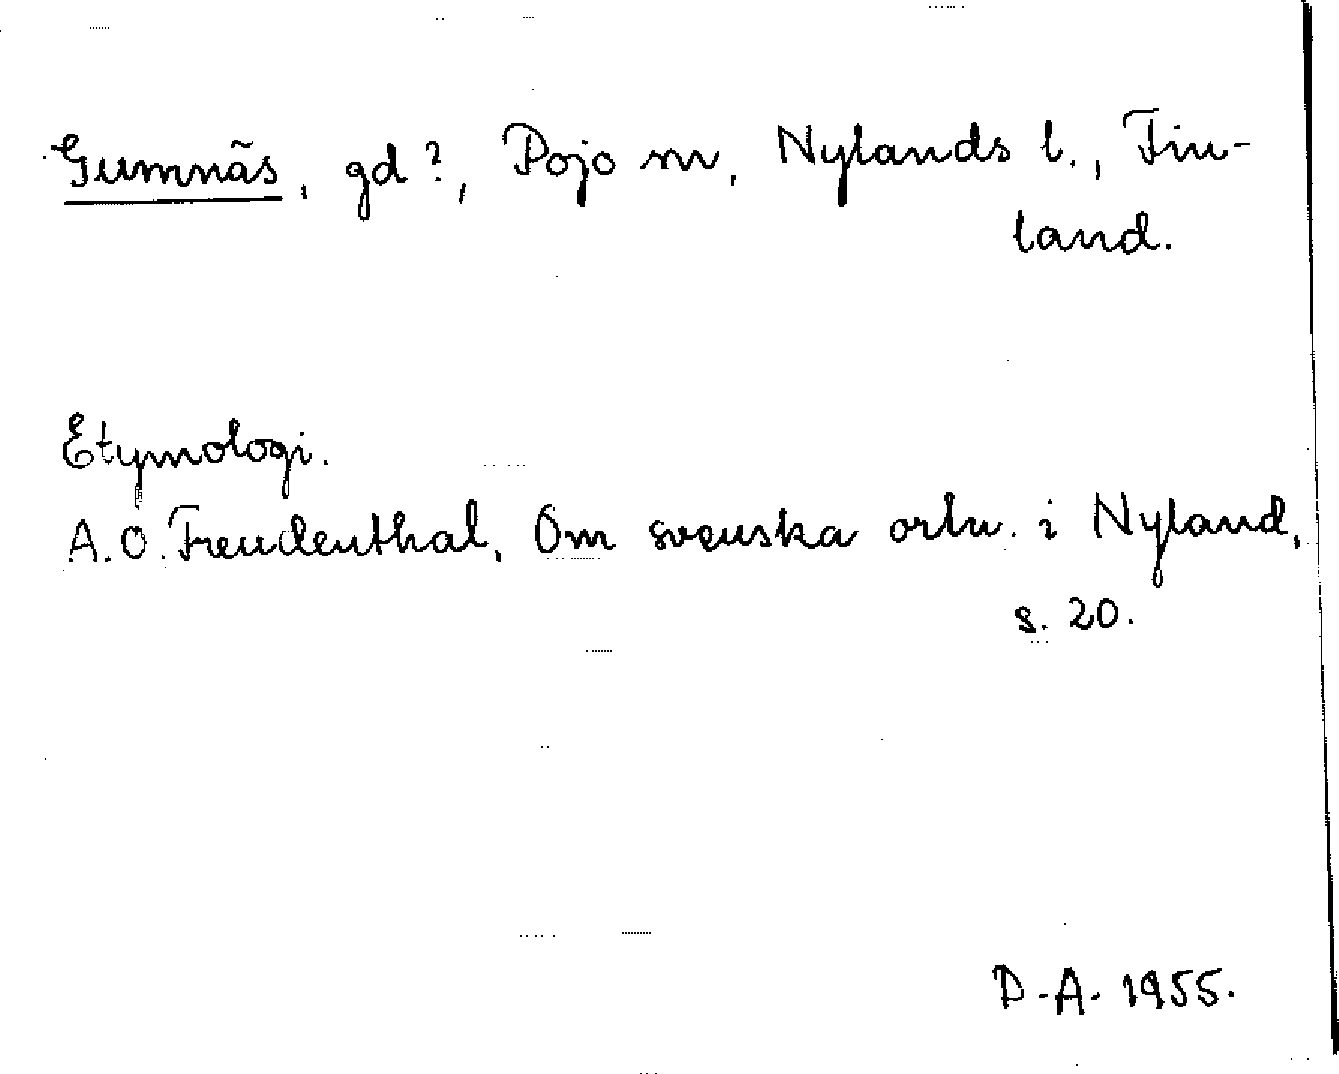 Gumnäs, gd?, Pojo sn, Nylands l., Fin-
land.
Etymologi.
A.O. Freudenthal, Om svenska ortn. i Nyland,
s. 20.
P.A. 1955.